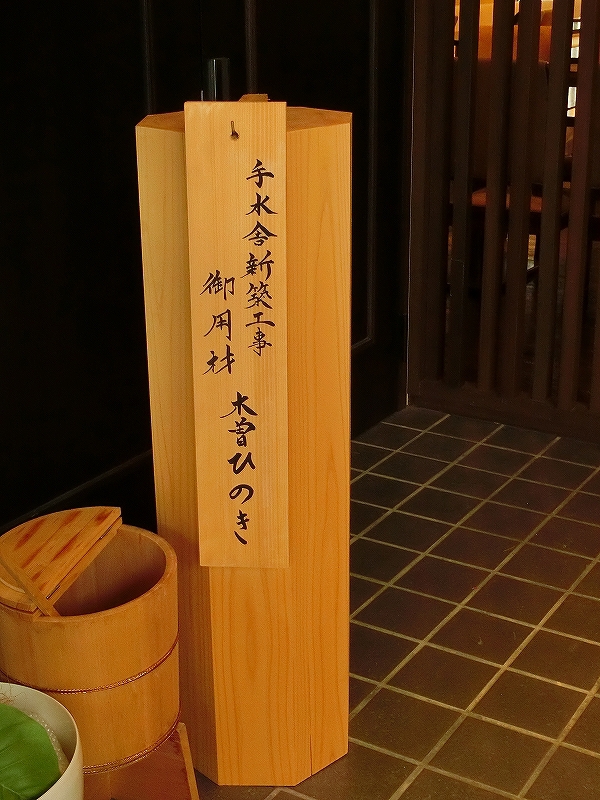 手水舎新築工事
御用材
木曽ひのき